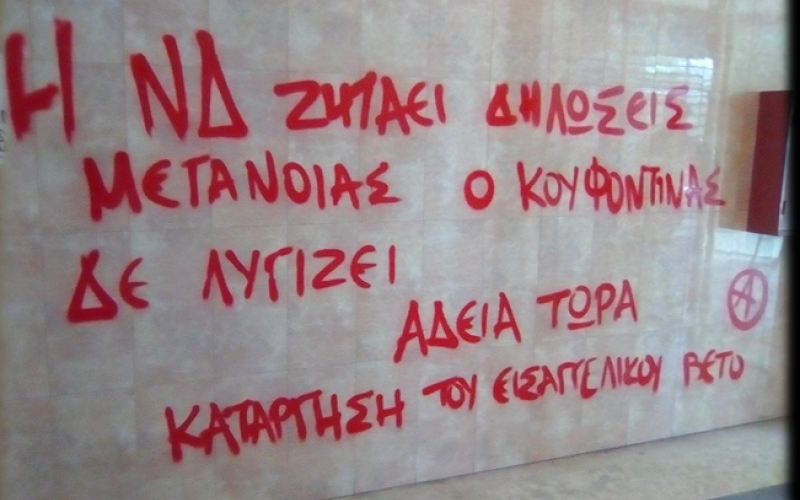 Η ΝΔ ΖΗΤΑΕΙ ΔΗΛΩΣΕΙΣ
ΜΕΤΑΝΟΙΑΣ Ο ΚΟΥΦΟΝΤΙΝΑΣ
ΔΕ ΛΥΓΙΖΕΙ
ΑΔΕΙΑ ΤΩΡΑ
Α
ΚΑΤΑΡΓΗΣΗ ΤΟΥ ΕΙΣΑΓΓΕΛΙΚΟΥ ΒΕΤΟ